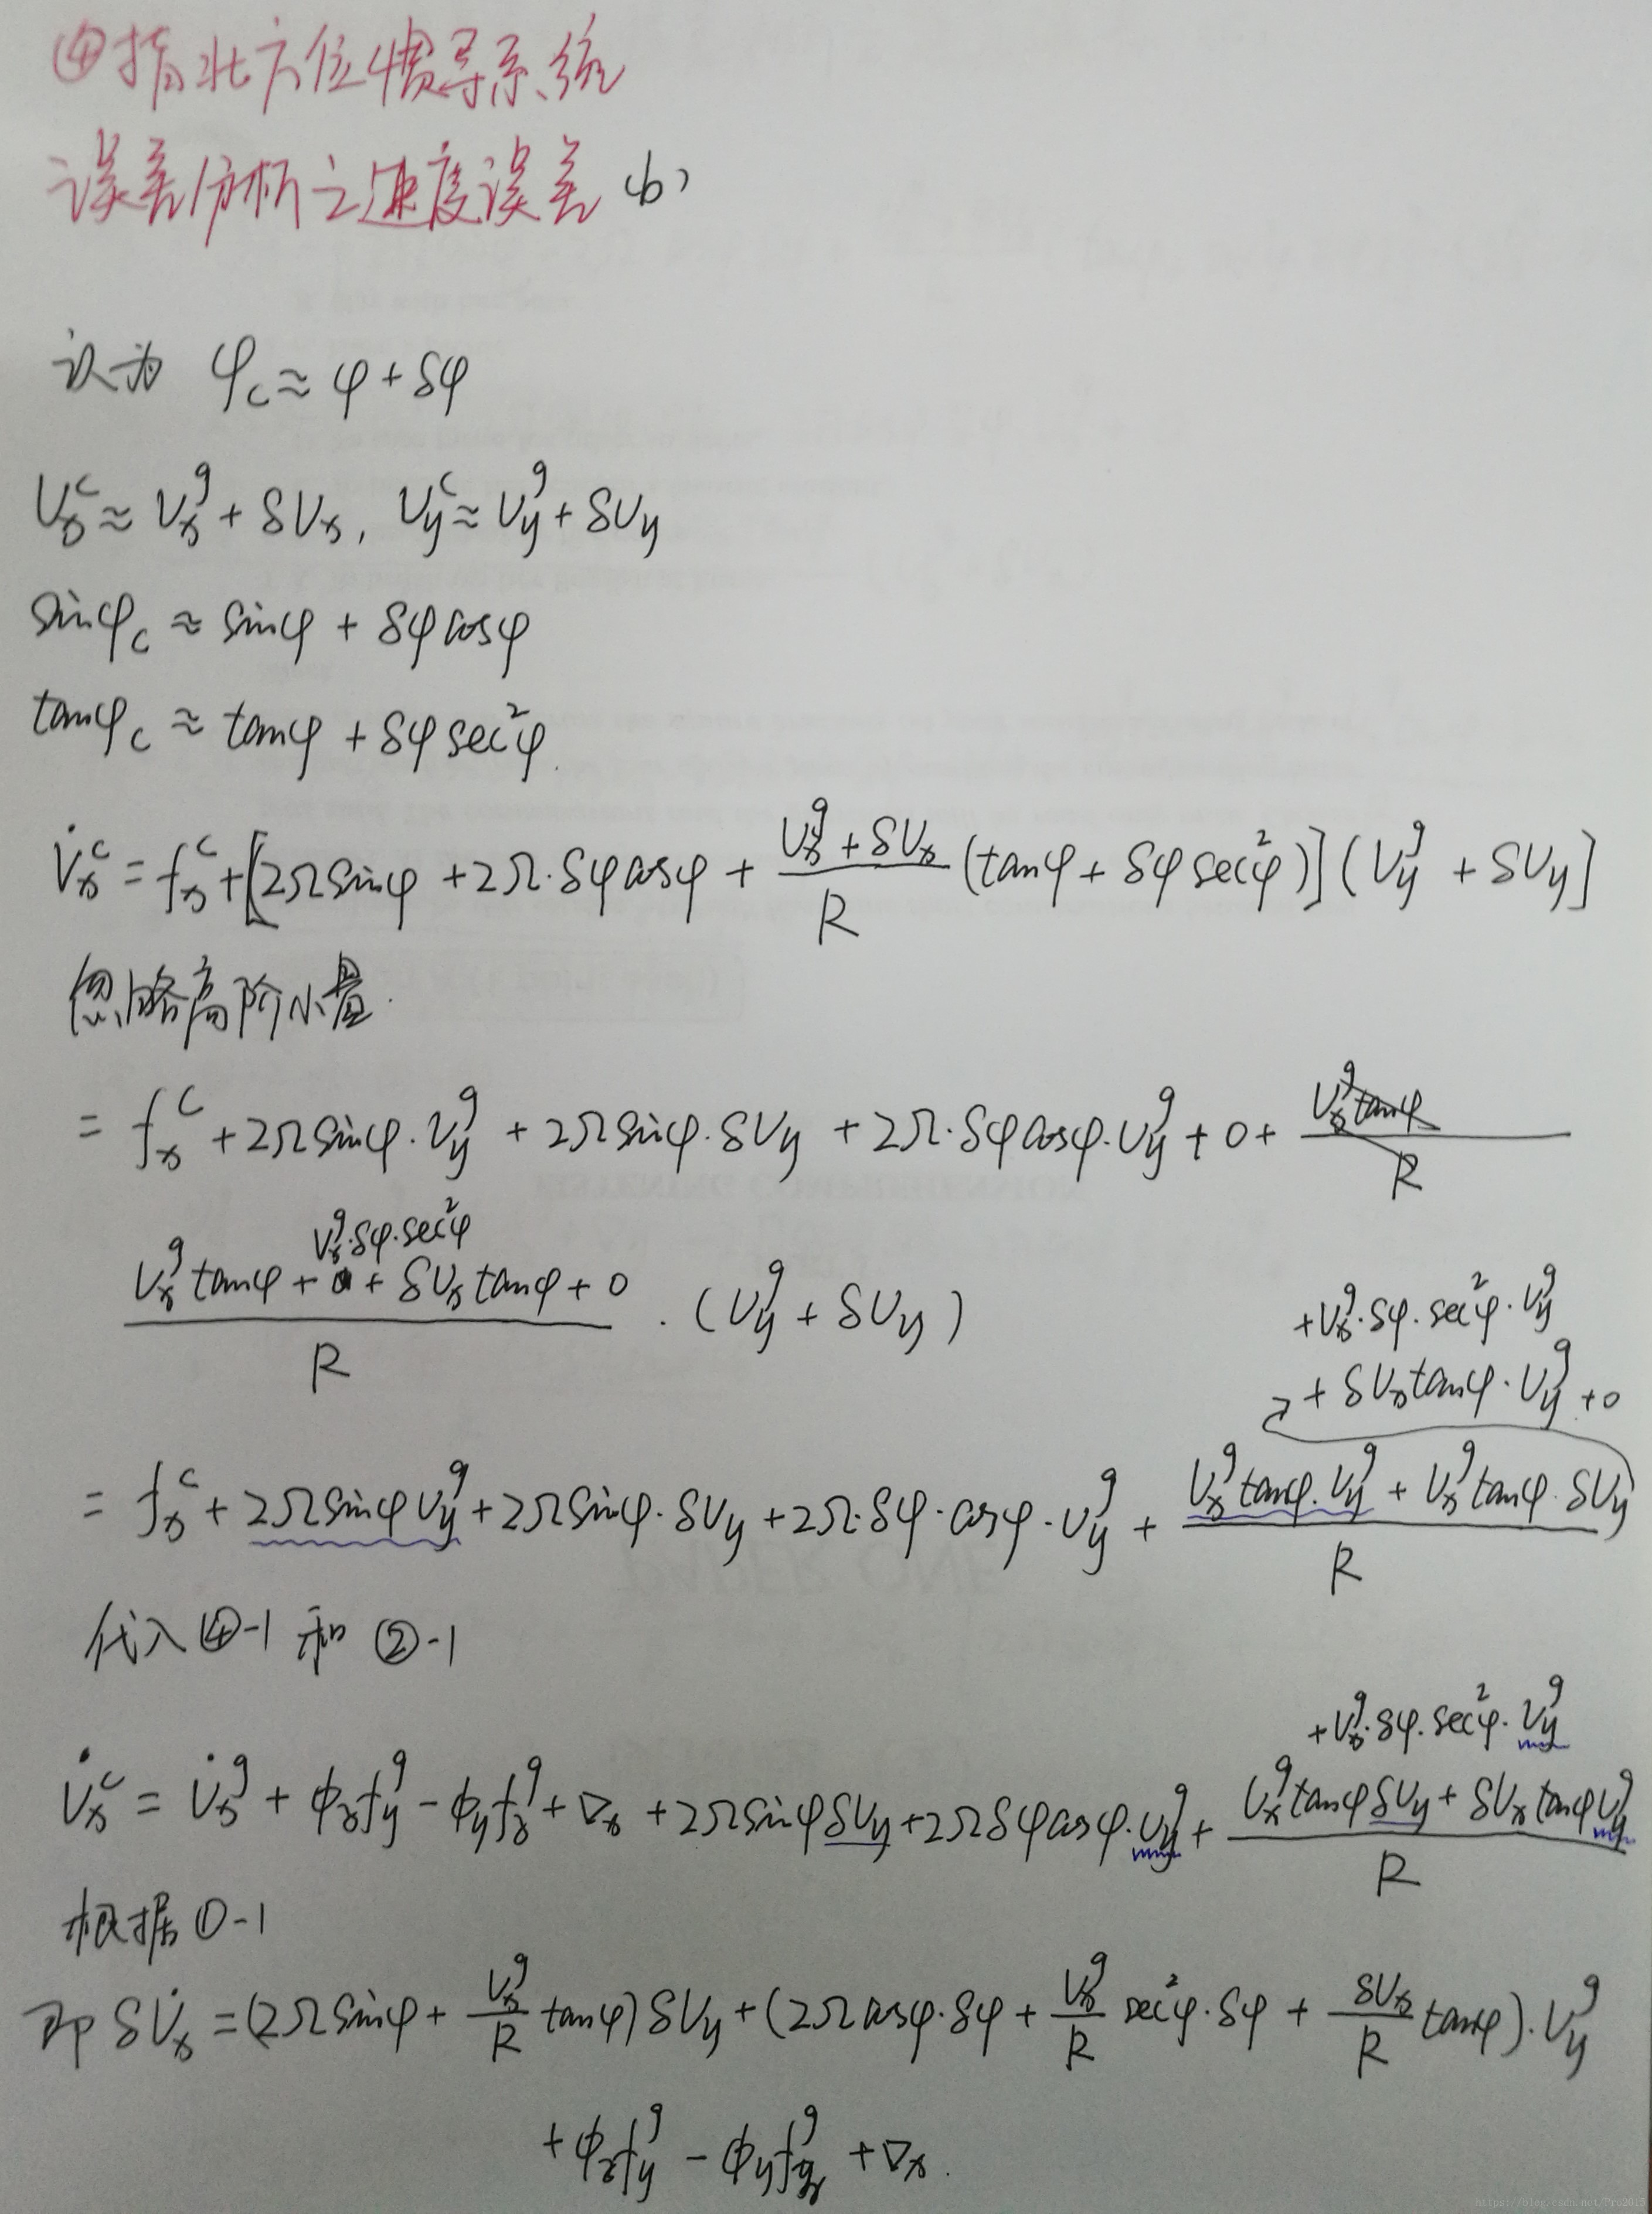 ④指北方位惯导系统
误差分析之速度误差 (b)
认为 φ_c ≈ φ + δφ
V_x^c ≈ V_x^g + δV_x, V_y^c ≈ V_y^g + δV_y
sinφ_c ≈ sinφ + δφ cosφ
tanφ_c ≈ tanφ + δφ sec²φ.
V̇_x^c = f_x^c + [2Ω sinφ + 2Ω·δφ cosφ + (V_x^g + δV_x)/R (tanφ + δφ sec²φ)] (V_y^g + δV_y]
忽略高阶小量.
= f_x^c + 2Ω sinφ·V_y^g + 2Ω sinφ·δV_y + 2Ω·δφ cosφ·V_y^g + 0 + V_x^g tanφ / R
(V_x^g tanφ + V_x^g·δφ·sec²φ + δV_x tanφ + 0)/R · (V_y^g + δV_y)
= f_x^c + 2Ω sinφ V_y^g + 2Ω sinφ·δV_y + 2Ω·δφ·cosφ·V_y^g + (V_x^g tanφ·V_y^g + V_x^g tanφ·δV_y + δV_x tanφ·V_y^g + 0 + V_x^g·δφ·sec²φ·V_y^g)/R
代入④-1 和 ②-1
V̇_x^c = V̇_x^g + ϕ_z f_y^g - ϕ_y f_z^g + ∇_x + 2Ω sinφ δV_y + 2Ω δφ cosφ·V_y^g + (V_x^g tanφ δV_y + δV_x tanφ V_y^g + V_x^g·δφ·sec²φ·V_y^g)/R
根据①-1
即 δV̇_x = (2Ω sinφ + V_x^g/R tanφ) δV_y + (2Ω cosφ·δφ + V_x^g/R sec²φ·δφ + δV_x/R tanφ)·V_y^g
+ ϕ_z f_y^g - ϕ_y f_z^g + ∇_x.
https://blog.csdn.net/Pro2015